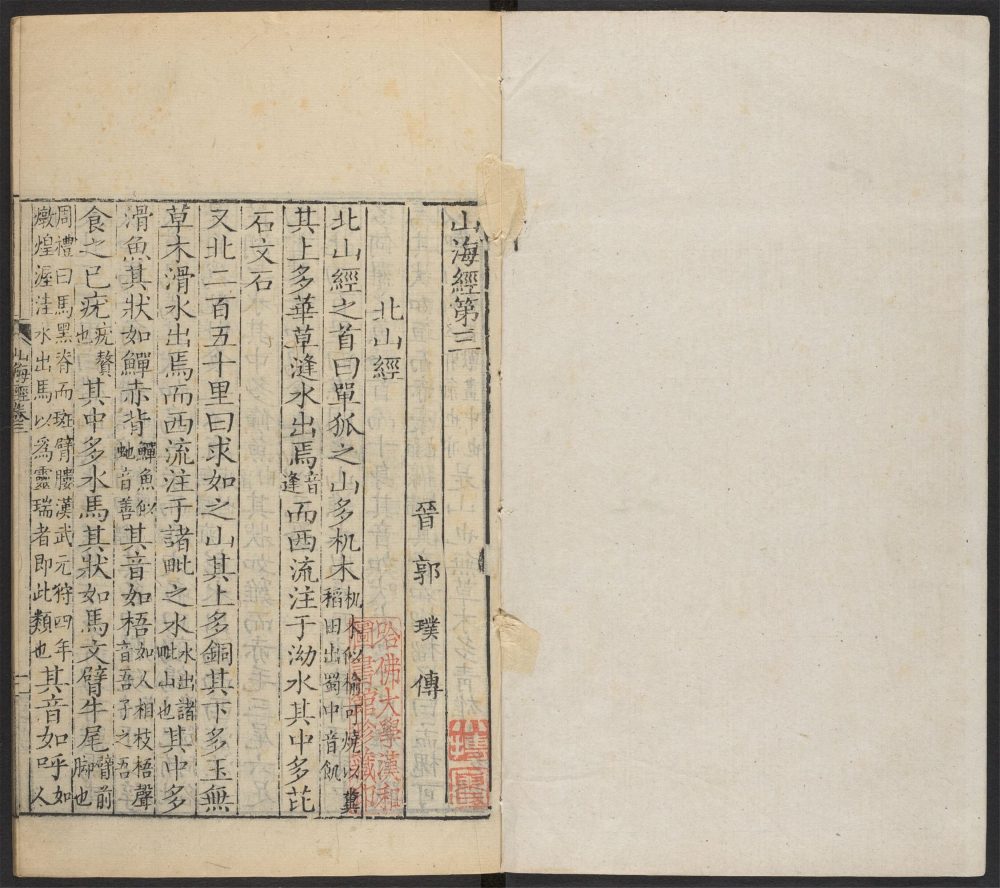 山海經第三
晉 郭 璞 傳
北山經
北山經之首曰單狐之山多机木机木似榆可燒以糞稻田出蜀中音飢
其上多華草漨水出焉音逢而西流注于泑水其中多芘
石文石
又北二百五十里曰求如之山其上多銅其下多玉無
草木滑水出焉而西流注于諸毗之水水出諸毗山也其中多
滑魚其狀如鱓赤背鱓魚似虵音善其音如梧如人相枝梧聲音吾子之吾
食之已疣疣贅也其中多水馬其狀如馬文臂牛尾臂前脚也
周禮曰馬黑脊而斑臂膢漢武元狩四年燉煌渥洼水出馬以為靈瑞者即此類也其音如呼如人
山海經卷三
哈佛大學漢和圖書館珍藏印